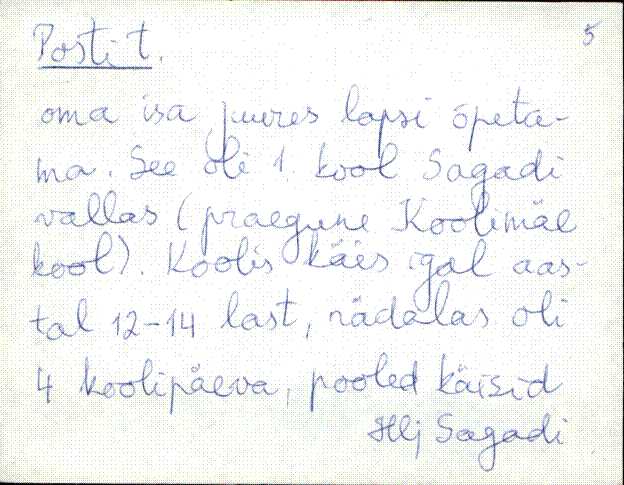 Posti t. 5
oma isa juures lapsi õpeta-
ma. See oli 1. kool Sagadi
vallas (praegune Koolimäe
kool). Koolis käis igal aas-
tal 12-14 last, nädalas oli
4 koolipäeva, pooled käisid
Hlj Sagadi